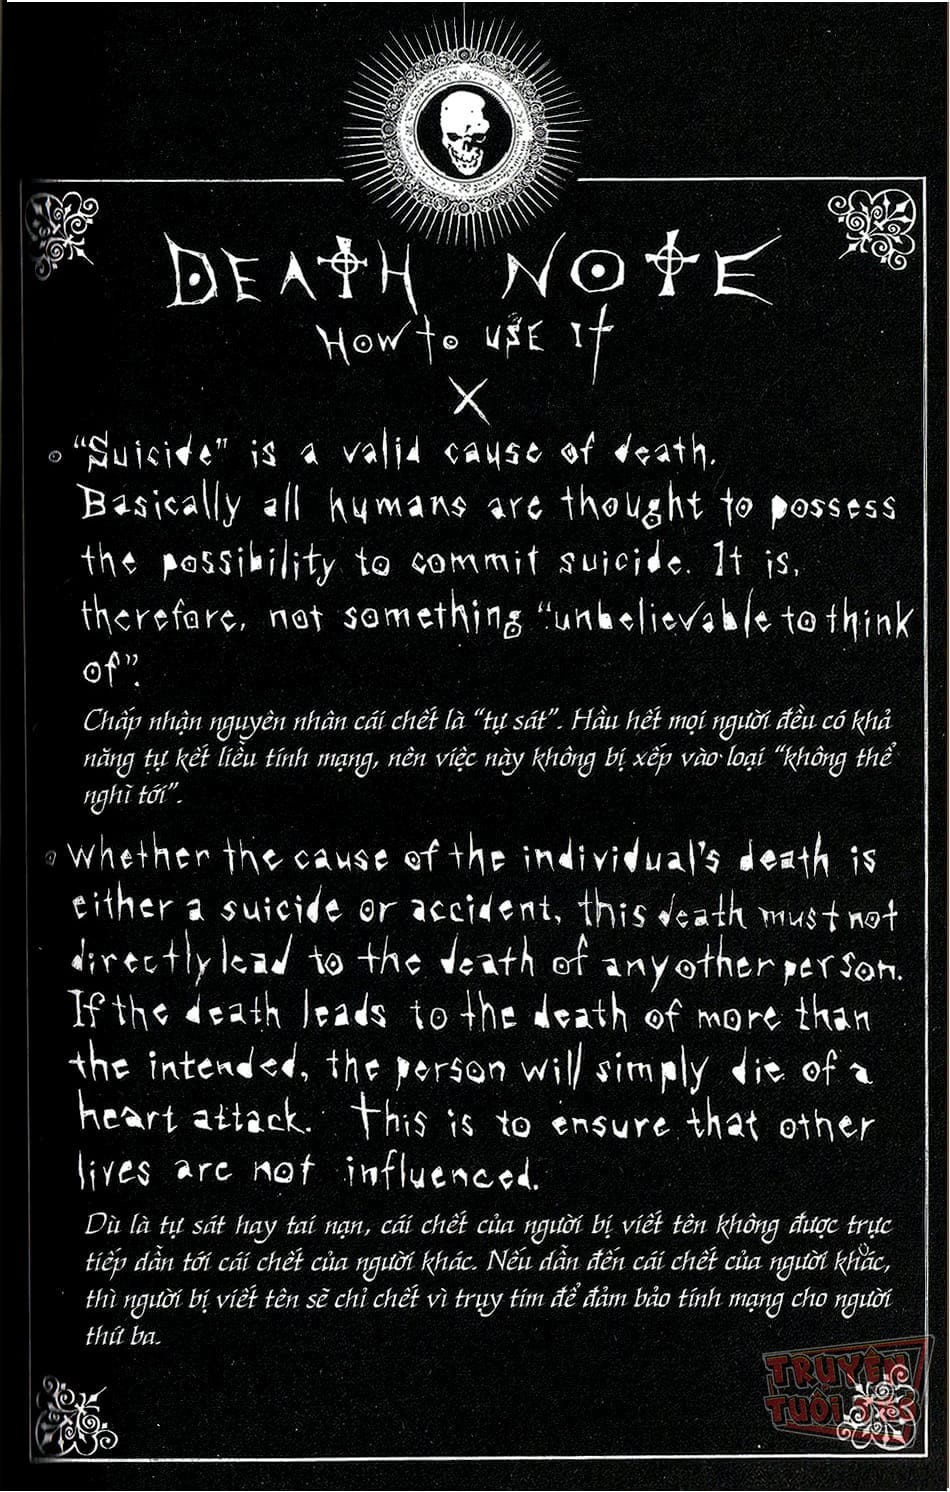 DEATH NOTE
HOW to USE It
X
"Suicide" is a valid cause of death.
Basically all humans are thought to possess
the possibility to commit suicide. It is,
therefore, not something "unbelievable to think
of".
Chấp nhận nguyên nhân cái chết là "tự sát". Hầu hết mọi người đều có khả
năng tự kết liễu tính mạng, nên việc này không bị xếp vào loại "không thể
nghĩ tới".
Whether the cause of the individual's death is
either a suicide or accident, this death must not
directly lead to the death of any other person.
If the death leads to the death of more than
the intended, the person will simply die of a
heart attack. This is to ensure that other
lives are not influenced.
Dù là tự sát hay tai nạn, cái chết của người bị viết tên không được trực
tiếp dẫn tới cái chết của người khác. Nếu dẫn đến cái chết của người khác,
thì người bị viết tên sẽ chỉ chết vì trụy tim để đảm bảo tính mạng cho người
thứ ba.
TRUYỆN
TUỔI